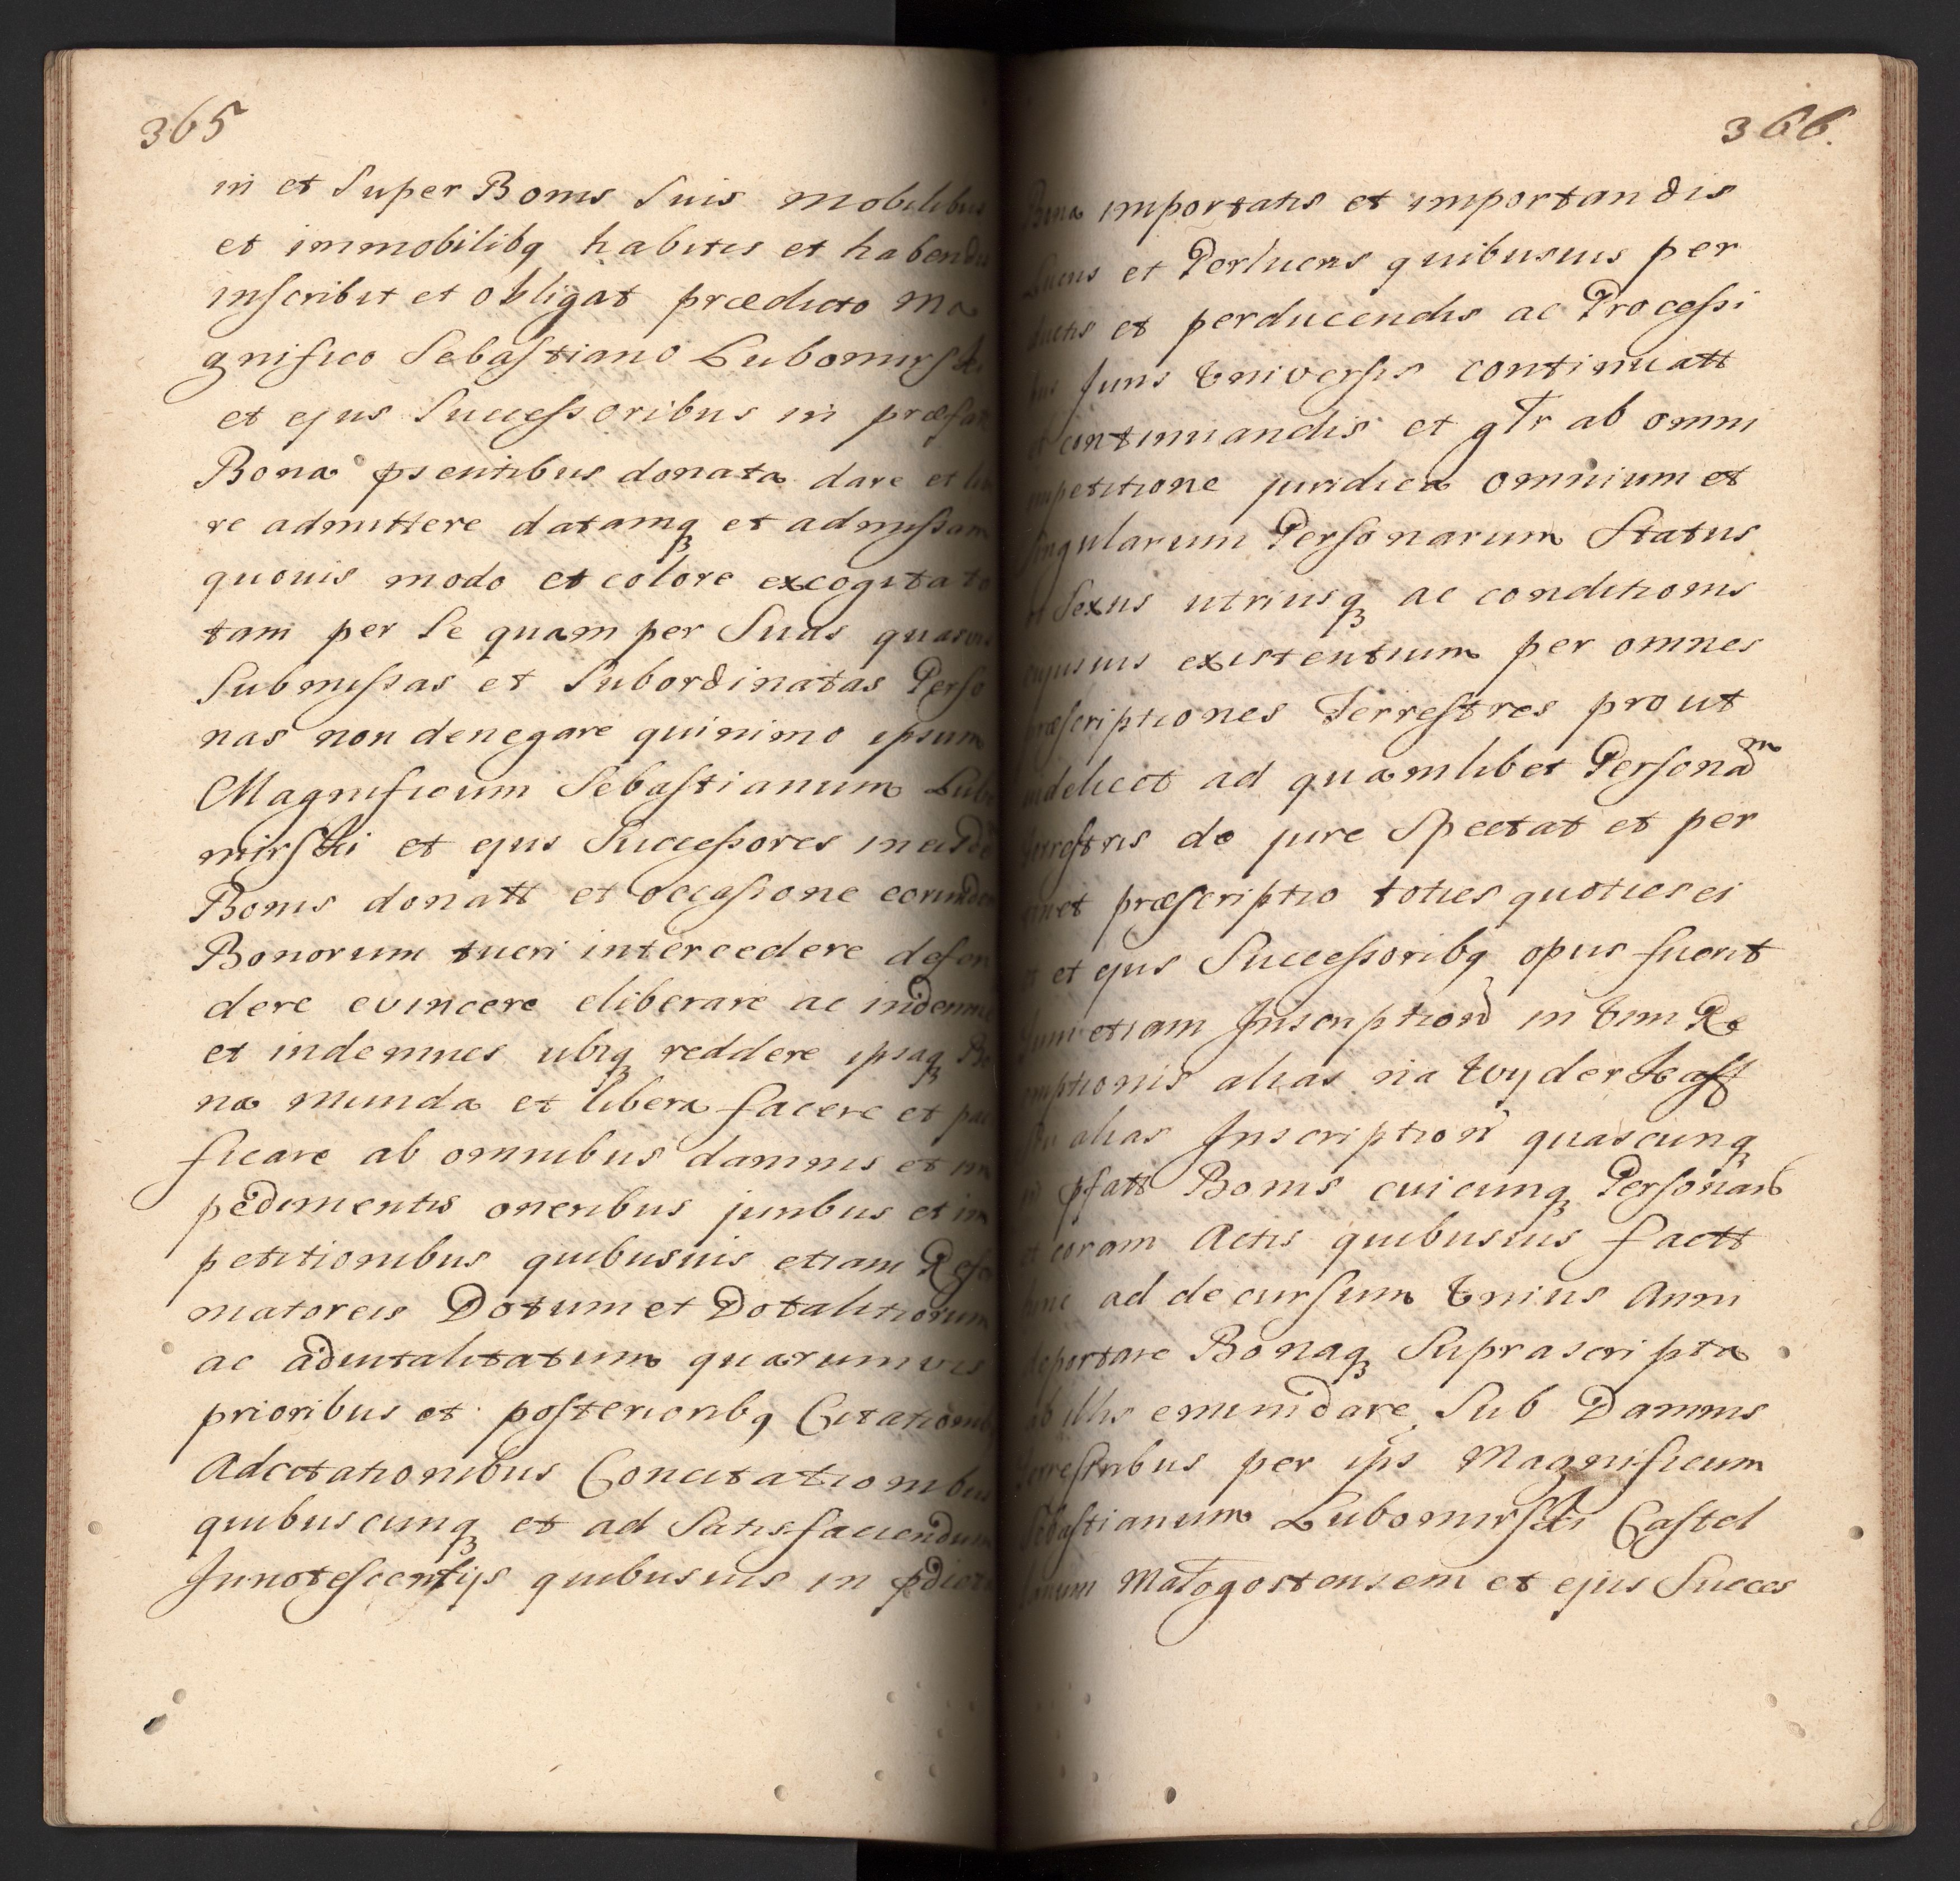 365
in et Super Bonis Suis mobilibus
et immobilibq habitis et habendis
inscribit et obligat prædicto Ma
gnifico Sebastiano Lubomirski
et ejus Successoribus in præfatt
Bona pñsentibus donata dare et libe
re admittere datamq et admissam
quovis modo et colore excogitato
tam per Se quam per Suas quasvis
Submissas et Subordinatas Perso
nas non denegare quinimo ipsum
Magnificum Sebastianum Lubo
mirski et ejus Successores in eisdē
Bonis donatt et occasione eorundem
Bonorum tueri intercedere defen
dere evincere eliberare ac indemnē
et indemnes ubiq reddere ipsaq Bo
na munda et libera facere et paci
ficare ab omnibus damnis et im
pedimentis oneribus juribus et im
petitionibus quibusuis etiam Refor
matoreis Dotum et Dotalitiorum
ac advitalitatum quarumvis
prioribus et posterioribq Citationib
Adcitationibus Concitationibus
quibuscunq et ad Satisfaciendum
Innotescentijs quibusuis in pdicta
366.
Bona importatis et importandis
Lucris et Perlucris quibusuis per
ductis et perducendis ac Processi
bus Juris Universis continuatt
et continuandis et głr ab omni
impetitione juridica omnium et
singularum Personarum Status
et Sexus utriusq ac conditionis
cujusuis existentium per omnes
præscriptiones Terrestres prout
videlicet ad quamlibet Personam
terrestris de jure Spectat et per
tinet præscriptio toties quoties ei
et ejus Successoribq opus fuerit
Tum etiam Inscription in Vim Re
emptionis alias na Wyderkaff
Seu alias Inscription quascunq
in pfatt Bonis cuicunq Personar
et coram Actis quibusuis factt
hinc ad decursum Unius Anni
deportare Bonaq Suprascripta
ab illis emundare Sub Damnis
terrestribus per ips Magnificum
Sebastianum Lubomirski Castel
lanum Małogostensem et ejus Succes